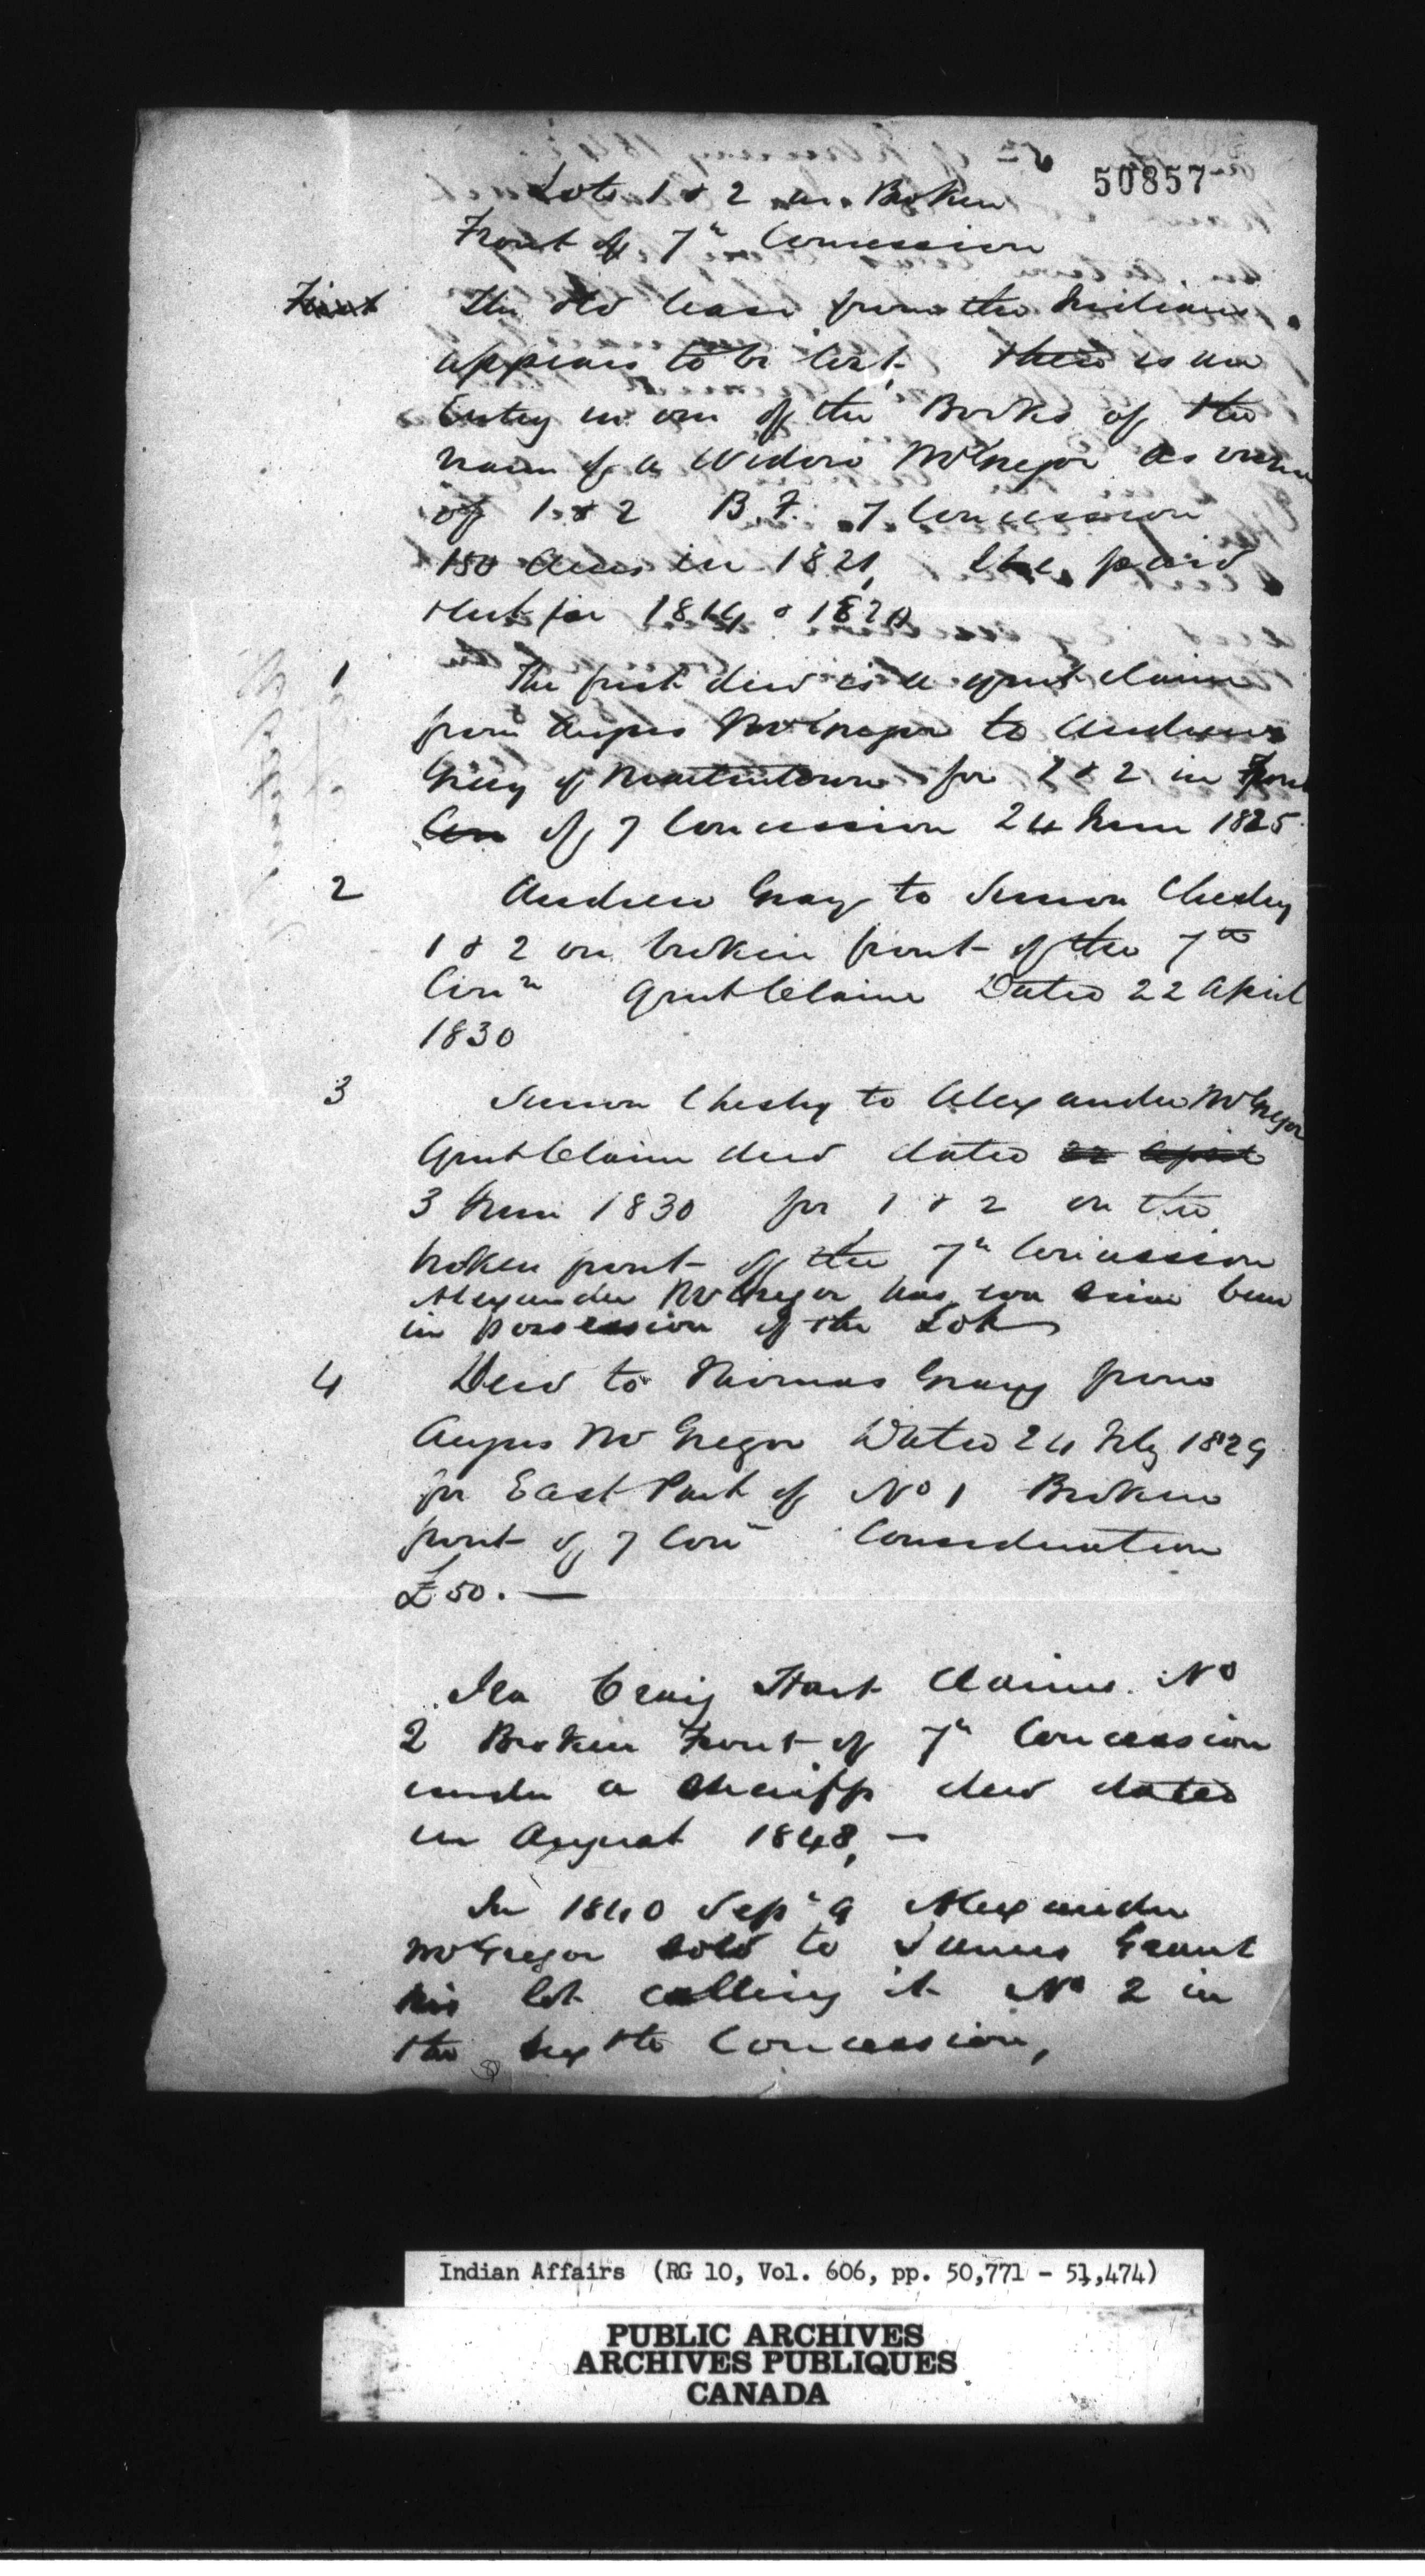 50857
Lots 1 & 2 on Broken
Front of 7th Concession
First The old lease from the Indians
appears to be lost. there is an
Entry in one of the Books of the
name of a Widow McGregor as owner
of 1 & 2 B. F. 7 Concession
150 Acres in 1821, She paid
rent for 1814 & 1820
1 The first deed is a quit claim
from Angus McGregor to Andrew
Gray of Martintown for 1 & 2 in Front
Con of 7 Concession 24 June 1825
2 Andrew Gray to Simon Chesley
1 & 2 on broken front of the 7th
Conn Quit Claim Dated 22 April
1830
3 Simon Chesley to Alexander McGregor
Quit Claim deed dated 22 April
3 June 1830 for 1 & 2 on the
broken front of the 7th Concession
Alexander McGregor has ever since been
in possession of the Lot
4 Deed to Thomas Gray from
Angus McGregor Dated 24 Feby 1829
for East Part of No 1 Broken
front of 7 Con Consideration
£50. —
Ira Craig Hart Claims No
2 Broken Front of 7th Concession
under a Sheriffs deed dated
in August 1848, —
In 1840 Sepr 9 Alexander
McGregor sold to James Grant
his lot calling it No 2 in
the Sixth Concession,
Indian Affairs (RG 10, Vol. 606, pp. 50,771 - 51,474)
PUBLIC ARCHIVES
ARCHIVES PUBLIQUES
CANADA